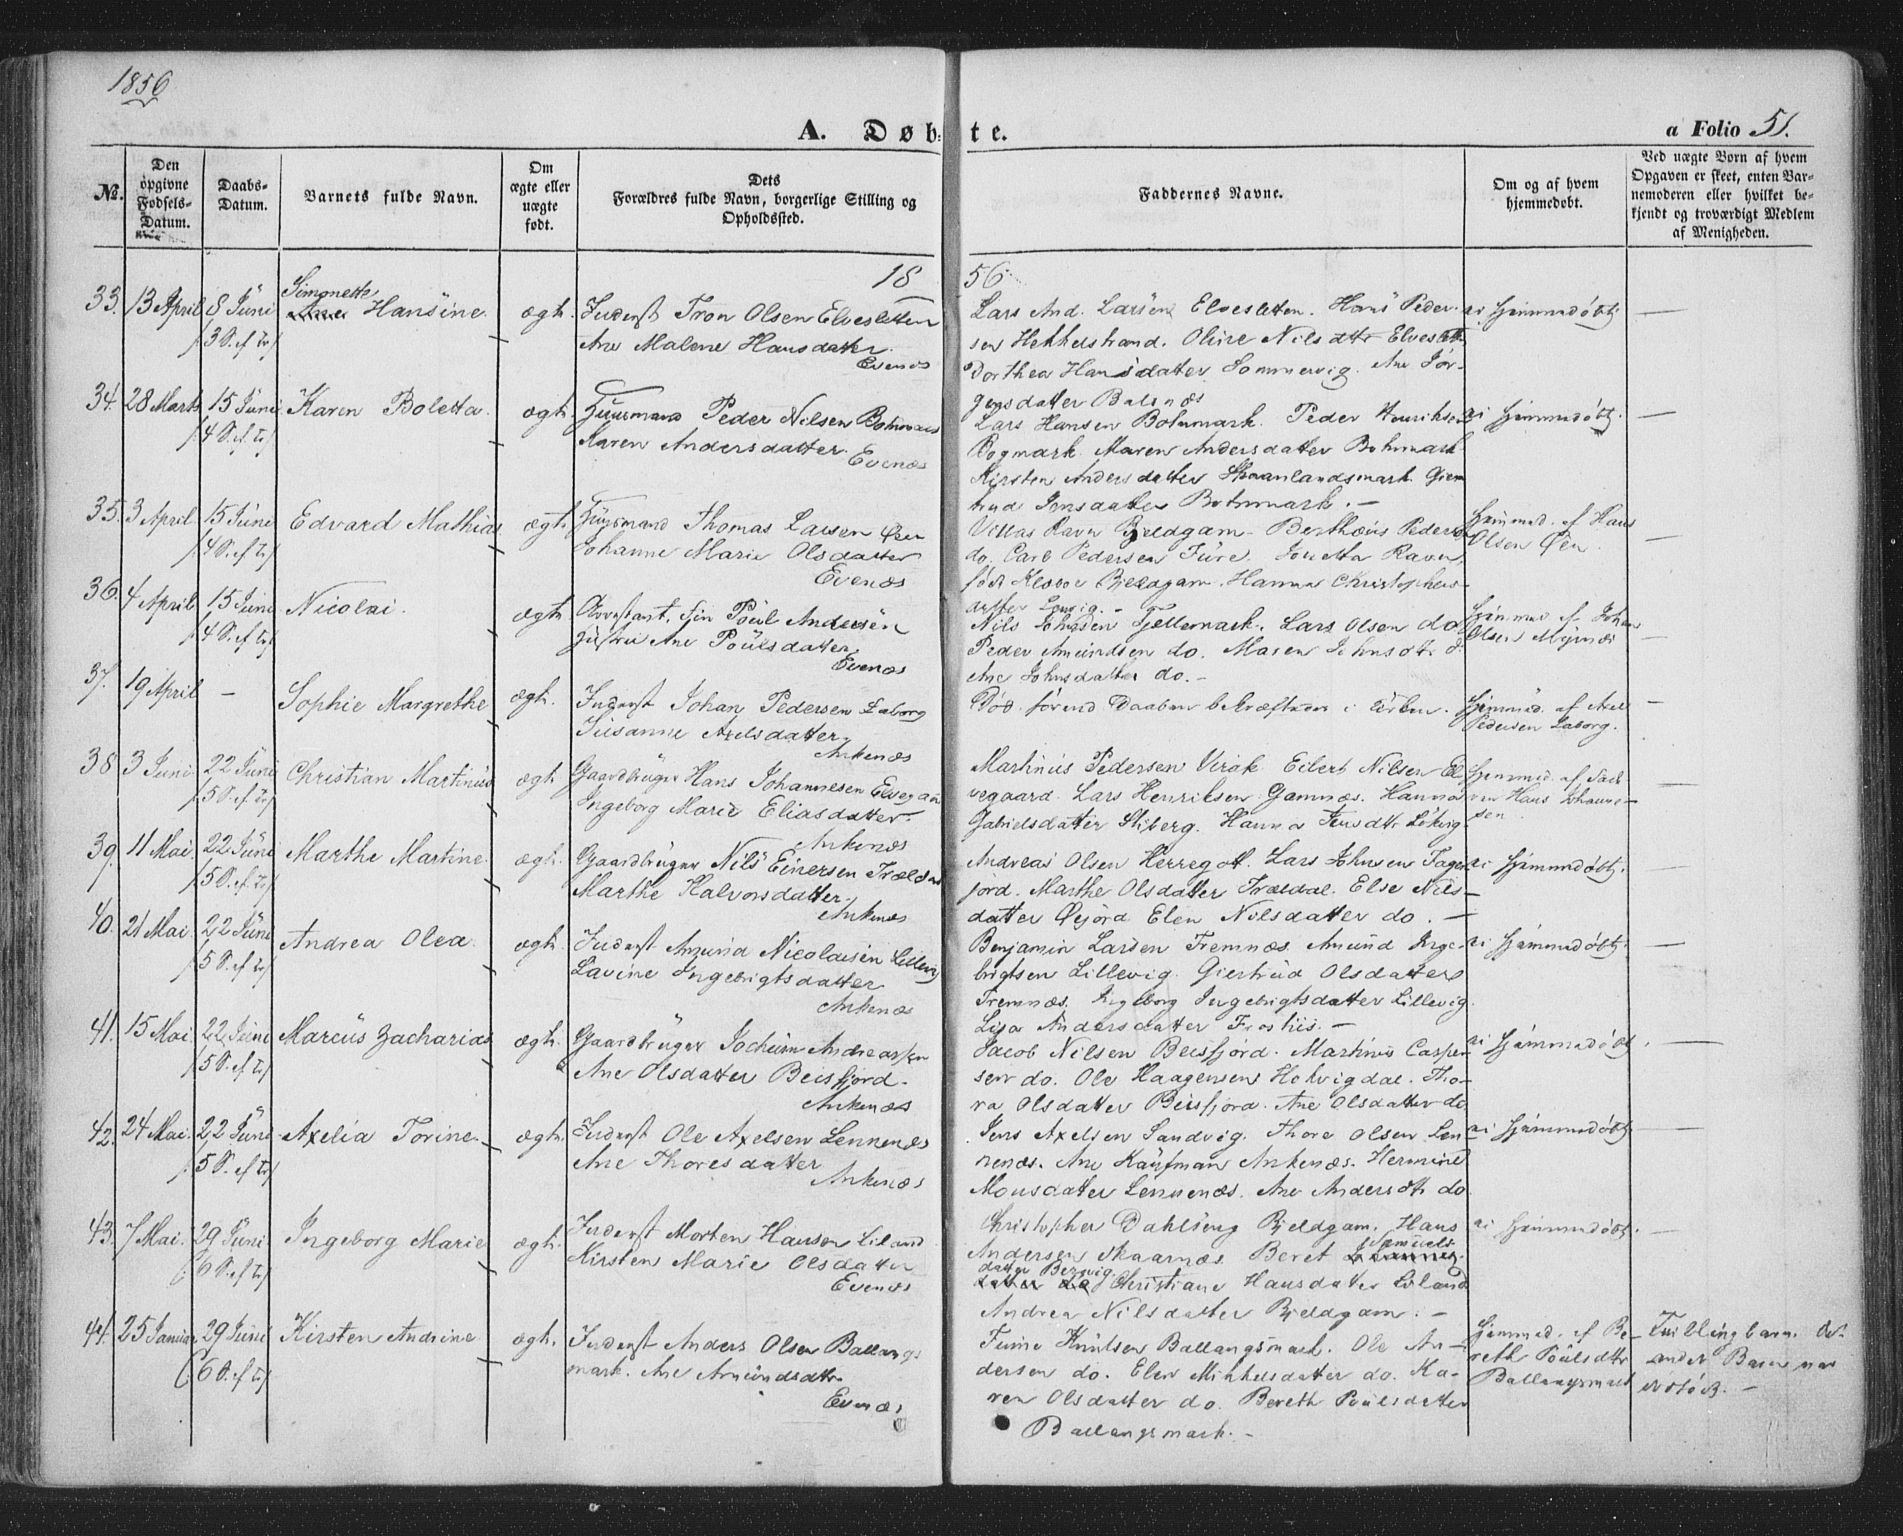 1856
A. Døb- te.
a Folio 51.
No.
Den opgivne Fødsels-Datum.
Daabs-Datum.
Barnets fulde Navn.
Om ægte eller uægte født.
Dets Forældres fulde Navn, borgerlige Stilling og Opholdssted.
Faddernes Navne.
Om og af hvem hjemmedøbt.
Ved uægte Børn af hvem Opgaven er skeet, enten Barnemoderen eller hvilket bekjendt og troværdigt Medlem af Menigheden.
18 56
33. 13 April 8 Juni Simonette Hansine ægte. Inderst Tron Olsen Elvesletten
3 S. ef Tr Ane Malene Hansdatter
Evenæs
Lars And. Larsen Elvesletten. Hans Peder-
sen Hekkelstrand. Oline Nilsdttr Elveslett
Dorthea Hansdatter Sommervig. Ane Jør-
gensdatter Balsnæs
ei hjemmedøbt. —
34. 28 Marts 15 Juni Karen Boletta ægte Huusmand Peder Nilsen Botnmark
4 S. ef Tr Karen Andersdatter
Evenæs
Lars Hansen Botnmark. Peder Henriksen
Bogmark. Maren Andersdatter Botnmark
Kirsten Andersdatter Skaanlandsmark. Gjer-
trud Jensdatter Botnmark. —
ei hjemmedøbt. —
35. 3 April 15 Juni Edvard Mathias ægte Huusmand Thomas Larsen Øen
4 S. ef Tr Johanne Marie Olsdatter
Evenæs
Ravn Bjeldgam. Berthæus Peders
do. Carl Pedersen Fure. Ravn,
født Klæboe Bjeldgam. Hanna Christophers-
datter
hjemmed. af Hans
Olsen Øen. —
36. 4 April 15 Juni Nicolai ægte Poul Andersen
4 S. ef Tr Ane Poulsdatter
Evenæs
Nils Johnsen Fjellemark. Lars Olsen do
Peder Amundsen do. Maren Johnsdtr do
Ane Johnsdatter do. —
hjemmed af Johan
Olsen Myrnæs —
37. 19 April — Sophie Margrethe ægte. Inderst Johan Pedersen Laborg
Susanne Axelsdatter
Ankenæs
Død førend Daaben bekræftedes i Kirken.
hjemmed. af Axel
Pedersen Laborg. —
38 3 Juni 22 Juni Christian Martinus ægte Gaardbruger Hans Johannesen Elvegaard
5 S. ef Tr Ingeborg Marie Eliasdatter
Ankenæs
Martinus Pedersen Virak Eilert Nilsen El-
vegaard. Lars Henriksen Gamnæs. Hanna
Gabrielsdatter Stiberg. Hanna Jensdtr
hjemmed. af Fade-
ren Hans Johanne-
sen. —
39. 11 Mai 22 Juni Marthe Martine ægte. Gaardbruger Nils Einersen Trældal
5 S. ef Tr Marthe Halvorsdatter
Ankenæs
Andreas Olsen Herregott. Lars Johnsen Fager-
jord. Marthe Olsdatter Trældal. Else Nils-
datter Øijord Elen Nilsdatter do. —
ei hjemmedøbt. —
40. 21 Mai 22 Juni Andrea Olea ægte. Inderst Amund Nicolaisen Lillevig
5 S. ef Tr Lavine Ingebrigtsdatter
Ankenæs
Benjamin Larsen Fremnæs. Amund Inge-
brigtsen Lillevig. Giertrud Olsdatter
Fremnæs. Ingeborg Ingebrigtsdatter Lillevig
Lisa Andersdatter —
ei hjemmedøbt. —
41. 15 Mai 22 Juni Marcus Zacharias ægte. Gaardbruger Jochum Andreassen
5 S. ef Tr Ane Olsdatter Beisfjord.
Ankenæs
Jacob Nilsen Beisfjord. Martinus Casper-
sen do. Ole Haagensen Holvigdal. Tho-
ra Olsdatter Beisfjord. Ane Olsdatter do
ei hjemmedøbt. —
42. 24 Mai 22 Juni Axelia Torine ægte. Inderst Ole Axelsen Lennenæs
5 S. ef Tr Ane Thoresdatter
Ankenæs
Jens Axelsen Sandvig. Thore Olsen Len-
nenæs. Ane Kaufman Ankenæs. Hermine
Monsdatter Lennenæs. Ane Andersdtr do
ei hjemmedøbt. —
43. 7 Mai. 29 Juni Ingeborg Marie ægte. Inderst Morten Hansen Liland
6 S. ef Tr Kirsten Marie Olsdatter
Evenæs
Christopher Dahlseng Bjeldgam. Hans
Andersen Skaarnæs. Beret Samuels-
datter Bervig. Christiane Hansdatter Liland
Andrea Nilsdatter Bjeldgam. —
ei hjemmedøbt. —
44. 25 Januar 29 Juni Kirsten Andrine ægte. Inderst Anders Olsen Ballangs
6 S. ef Tr mark. Ane Amundsdtr
Evenæs
Knutsen Ballangsmark. Ole An-
dersen do. Elen Mikkelsdatter do. Ka-
ren Olsdatter do. Bereth Poulsdatter
Ballangsmark. —
hjemmed. af Be-
reth Poulsdtr
Ballangsmark
Tvillingbarn. Det
andet Barn var
dødfødt. —